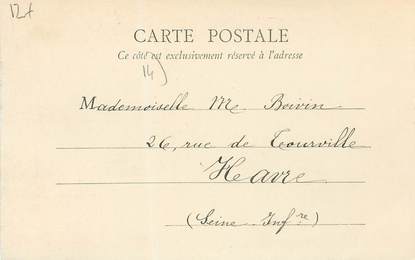 12+
CARTE POSTALE
Ce côté est exclusivement réservé à l'adresse
14)
Mademoiselle Mc Boivin
26, rue de Tourville
Havre
(Seine Inf re)